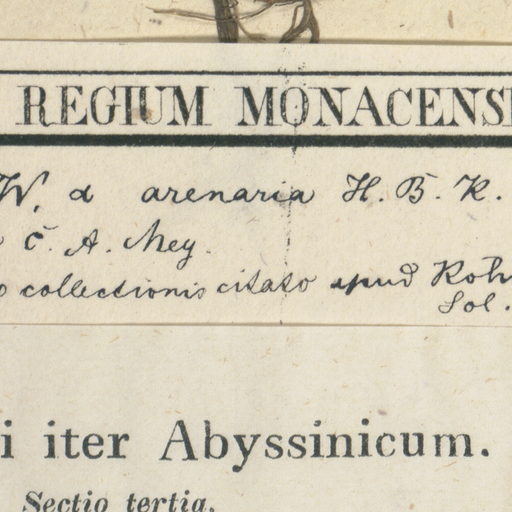 REGIUM MONACENS
W. α arenaria H. B. K.
C. A. Mey.
collectionis citato apud Roh
Sol.
i iter Abyssinicum.
Sectio tertia.